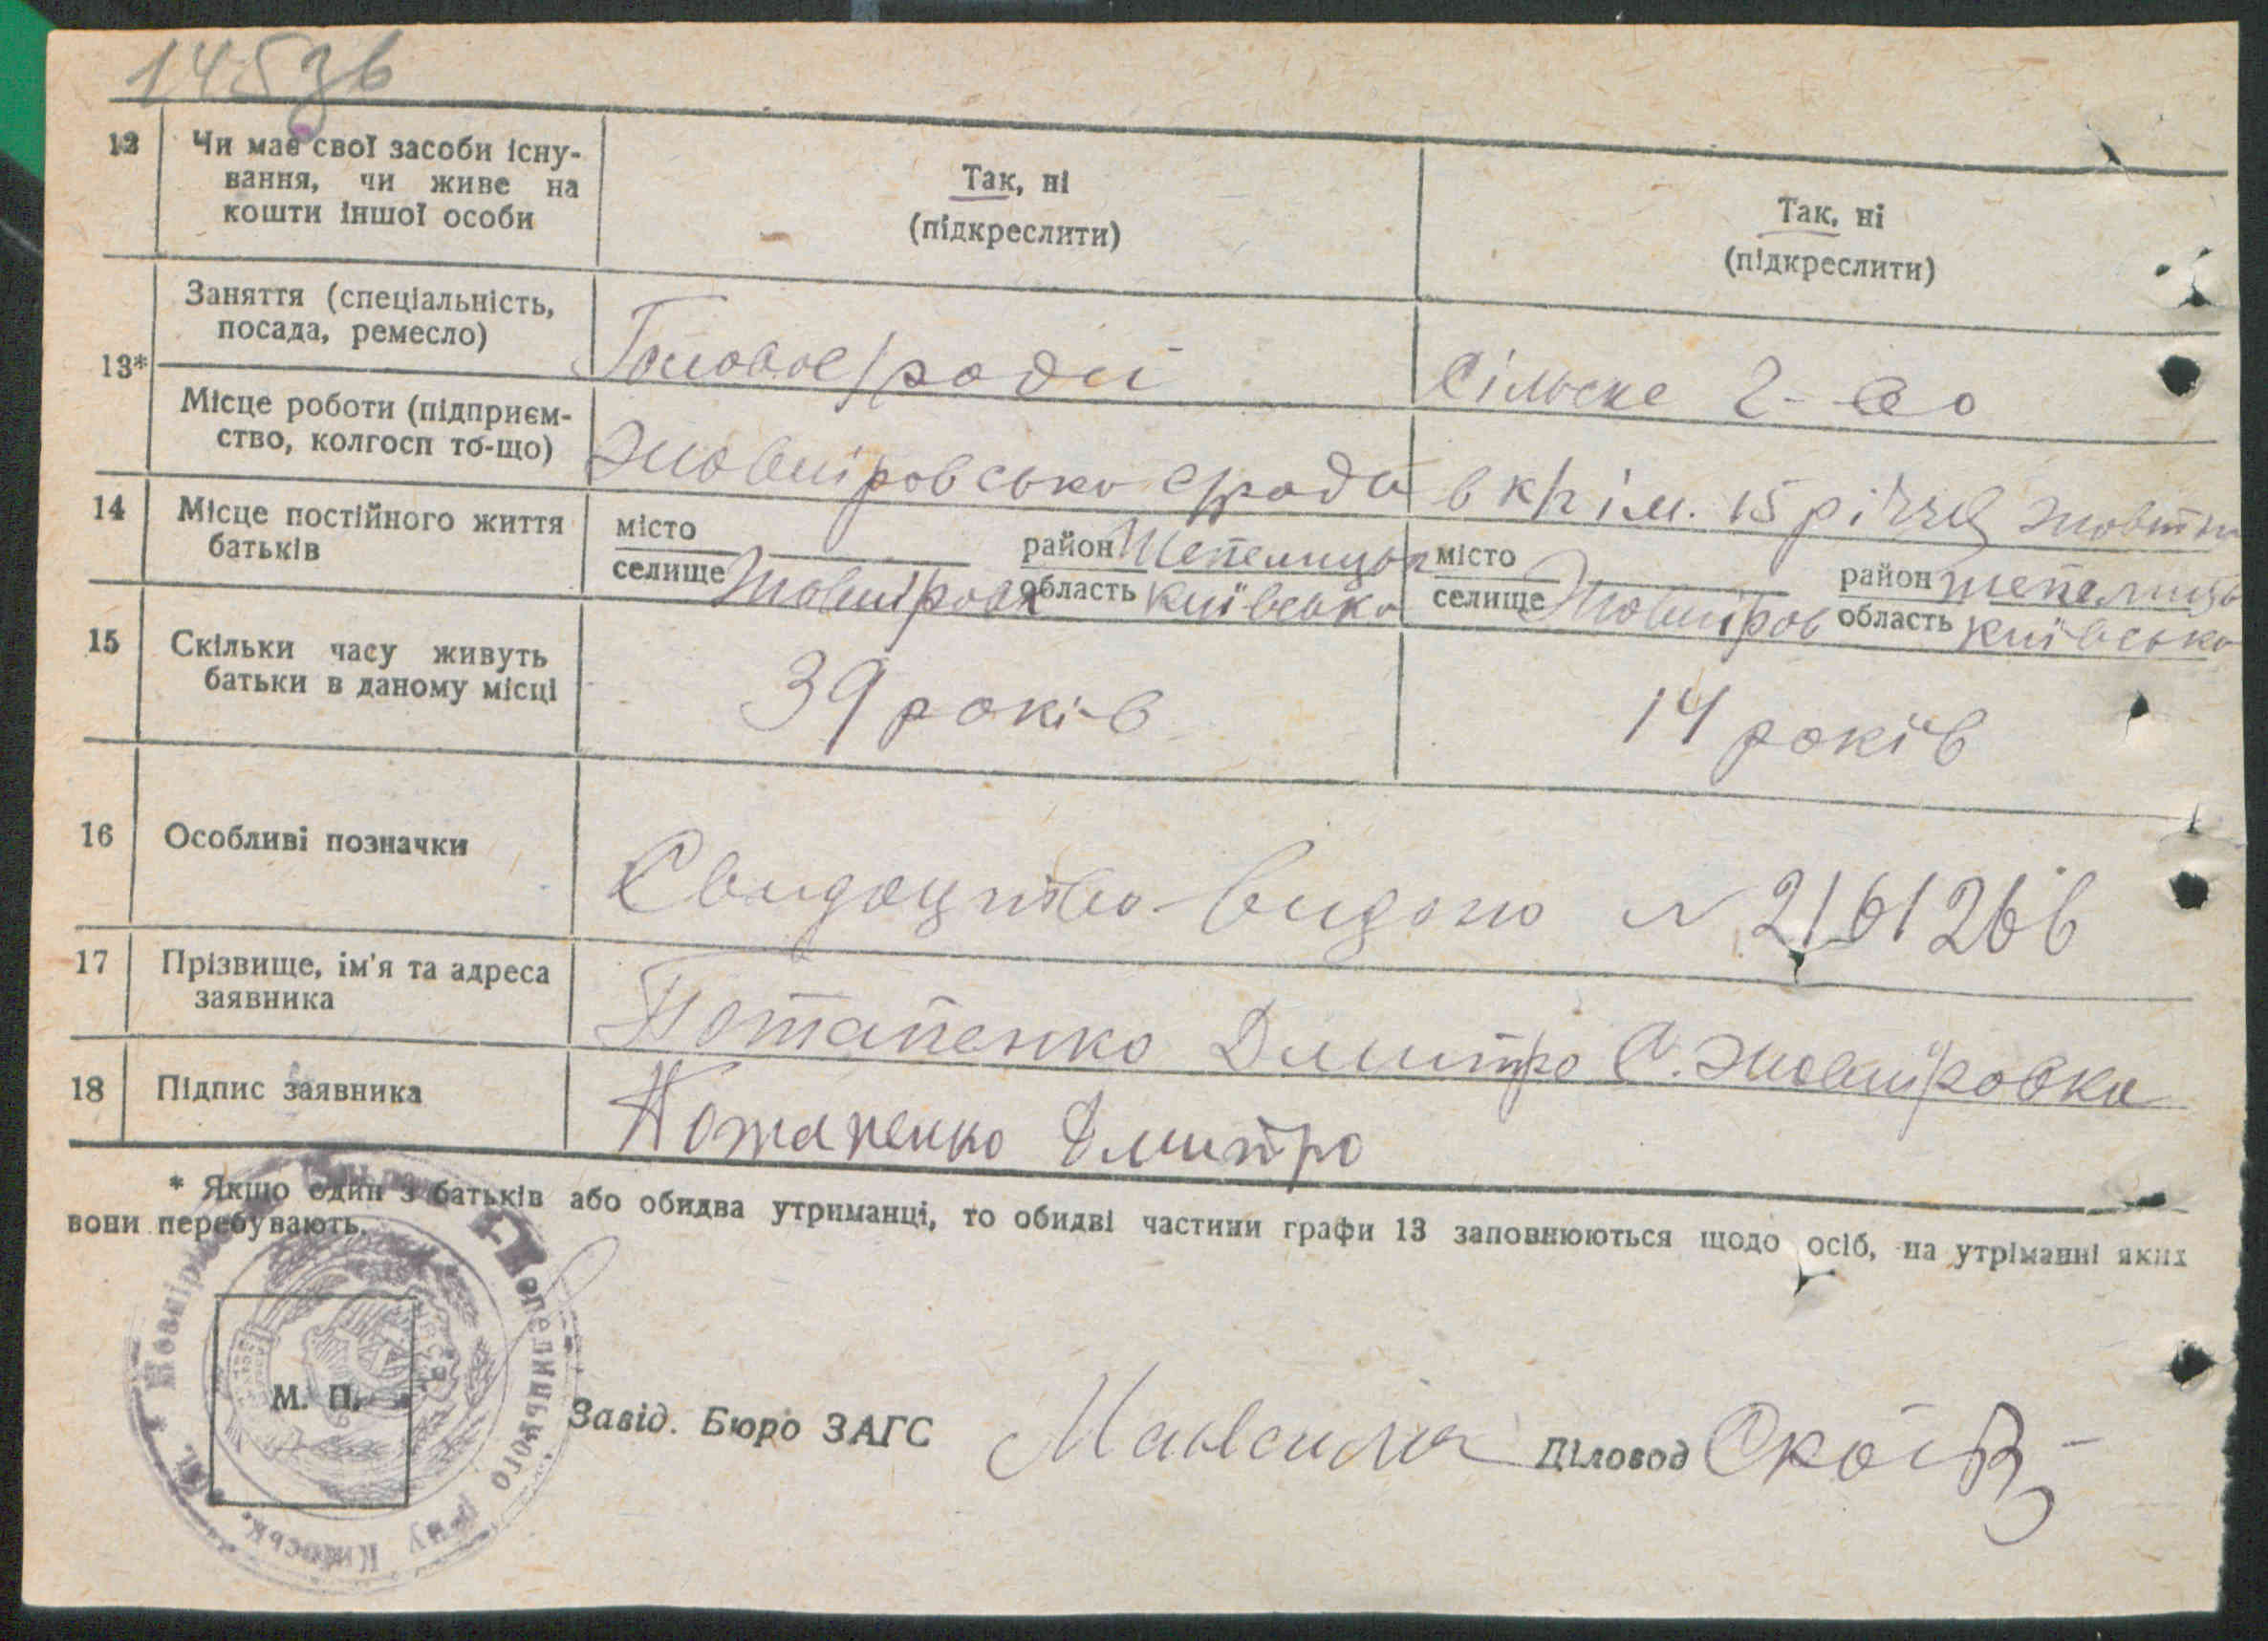 145зв
12 Чи має свої засоби існу-
вання, чи живе на
кошти іншої особи
Так, ні
(підкреслити)
Так, ні
(підкреслити)
13*
Заняття (спеціальність,
посада, ремесло)
Голова с/ради
Сільске г-во
Місце роботи (підприєм-
ство, колгосп то-що)
с/рада
в к/г ім. 15 річчя жовтня
14 Місце постійного життя
батьків
місто
селище
район Шепелицьк
область київсько
місто
селище
район шепелиць
область київсько
15 Скільки часу живуть
батьки в даному місці
39 років
14 років
16 Особливі позначки
Свидоцтво видано N 216126в
17 Прізвище, ім'я та адреса
заявника
Потапенко Дмитро С.
18 Підпис заявника
Потапенко Дмитро
* Якщо один з батьків або обидва утриманці, то обидві частини графи 13 заповнюються щодо осіб, на утріманні яких
вони перебувають.
М. П.
Завід. Бюро ЗАГС
Діловод